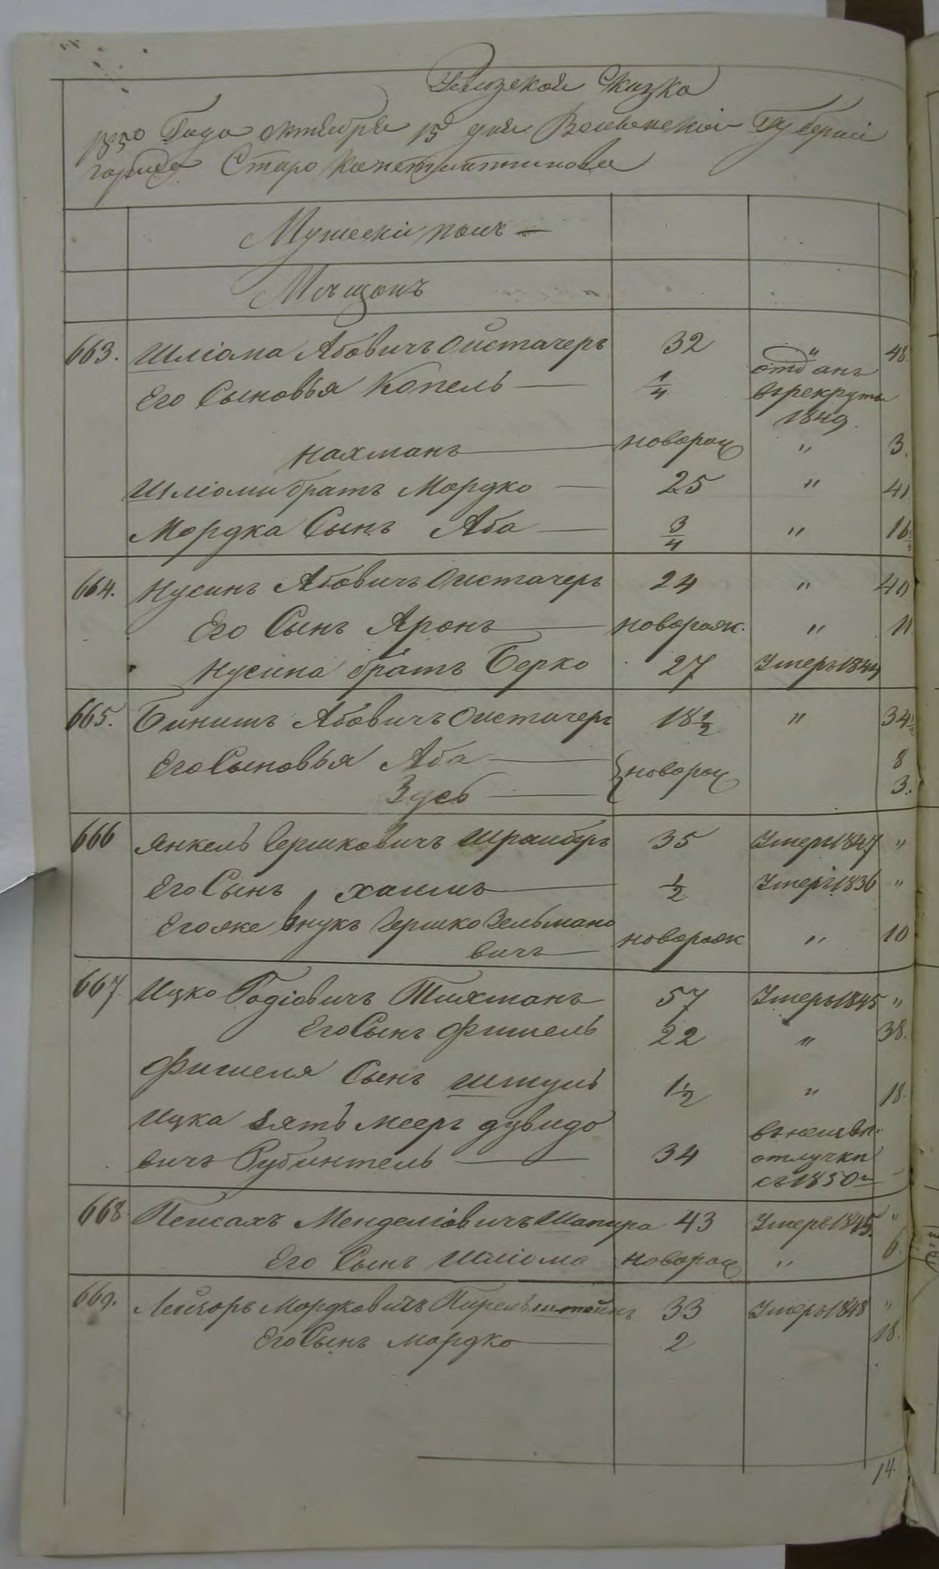 Ревизская Сказка
1850 Года октября 15 дня Волынской Губернiи
города Старо Константинова
Мужескiй полъ
Мѣщанъ
663. Шлiома Абовичъ Оистачеръ 32 " 48
Его Сыновья Копель 1/4 отданъ
в рекруты
1849.
Нахманъ новорож " 3.
Шлiомы братъ Мордко 25 " 41
Мордка Сынъ Аба 3/4 "
664. Нусинъ Абовичъ Оистачеръ 24 " 40
Его Сынъ Аронъ новорож. " 11
Нусина братъ Берко 27 Умеръ 1844
665. Бинишъ Абовичъ Оистачеръ 18 1/2 " 34 1/2
Его Сыновья Аба новорож 8
Зусь 3.
666 Янкель Гершковичъ Шраибер 35 Умеръ 1847 "
Его Сынъ Хаимъ 1/2 Умеръ 1836 "
Его же Внукъ Гершко Зельмано
вичъ новорож " 10
667 Ицко Годiовичъ Тихманъ 57 Умеръ 1845 "
Его Сынъ Фишель 22 " 38.
Фишеля Сынъ Шмуль 1 1/2 " 18.
Ицка зять Мееръ Дувидо
вичъ Рубинтель 34 в неизвѣ.
отлучки
съ 1850 г
668 Пеисахъ Менделiовичъ Шапира 43 Умеръ 1845. "
Его Сынъ Шлiома новорож " 6.
669. Лейзоръ Мордковичъ Пирельштейнъ 33 Умеръ 1848 "
Его Сынъ Мордко 2 18.
14